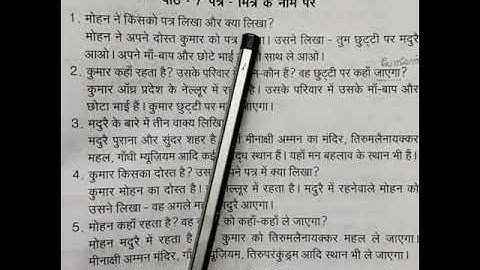 पाठ - 7 पत्र - मित्र के नाम पर
1. मोहन ने किसको पत्र लिखा और क्या लिखा?
मोहन ने अपने दोस्त कुमार को पत्र उसने लिखा - तुम छुट्टी पर मदुरै
आओ। अपने माँ-बाप और छोटे भाई साथ ले आओ।
2. कुमार कहाँ रहता है? उसके परिवार में कौन-कौन हैं? वह छुट्टी पर कहाँ जाएगा?
कुमार आँध्र प्रदेश के नेल्लूर में र है। उसके परिवार में उसके माँ-बाप और
छोटा भाई हैं। कुमार छुट्टी पर म जाएगा।
3. मदुरै के बारे में तीन वाक्य लिखि
मदुरै पुराना और सुंदर शहर है मीनाक्षी अम्मन का मंदिर, तिरुमलैनायक्कर
महल, गाँधी म्यूज़ियम आदि कई स्थान हैं। यहाँ मन बहलाव के स्थान भी हैं।
4. कुमार किसका दोस्त है? उसने पत्र में क्या लिखा?
कुमार मोहन का दोस्त है। नेल्लूर में रहता है। मदुरै में रहनेवाले मोहन को
उसने लिखा - वह अगले मह मदुरै आएगा।
5. मोहन कहाँ रहता है? वह को कहाँ-कहाँ ले जाएगा?
मोहन मदुरै में रहता है कुमार को तिरुमलैनायक्कर महल ले जाएगा।
मीनाक्षी अम्मन मंदिर, गाँ यूज़ियम, तिरुपरंकुंड्रम आदि स्थान भी ले जाएगा।